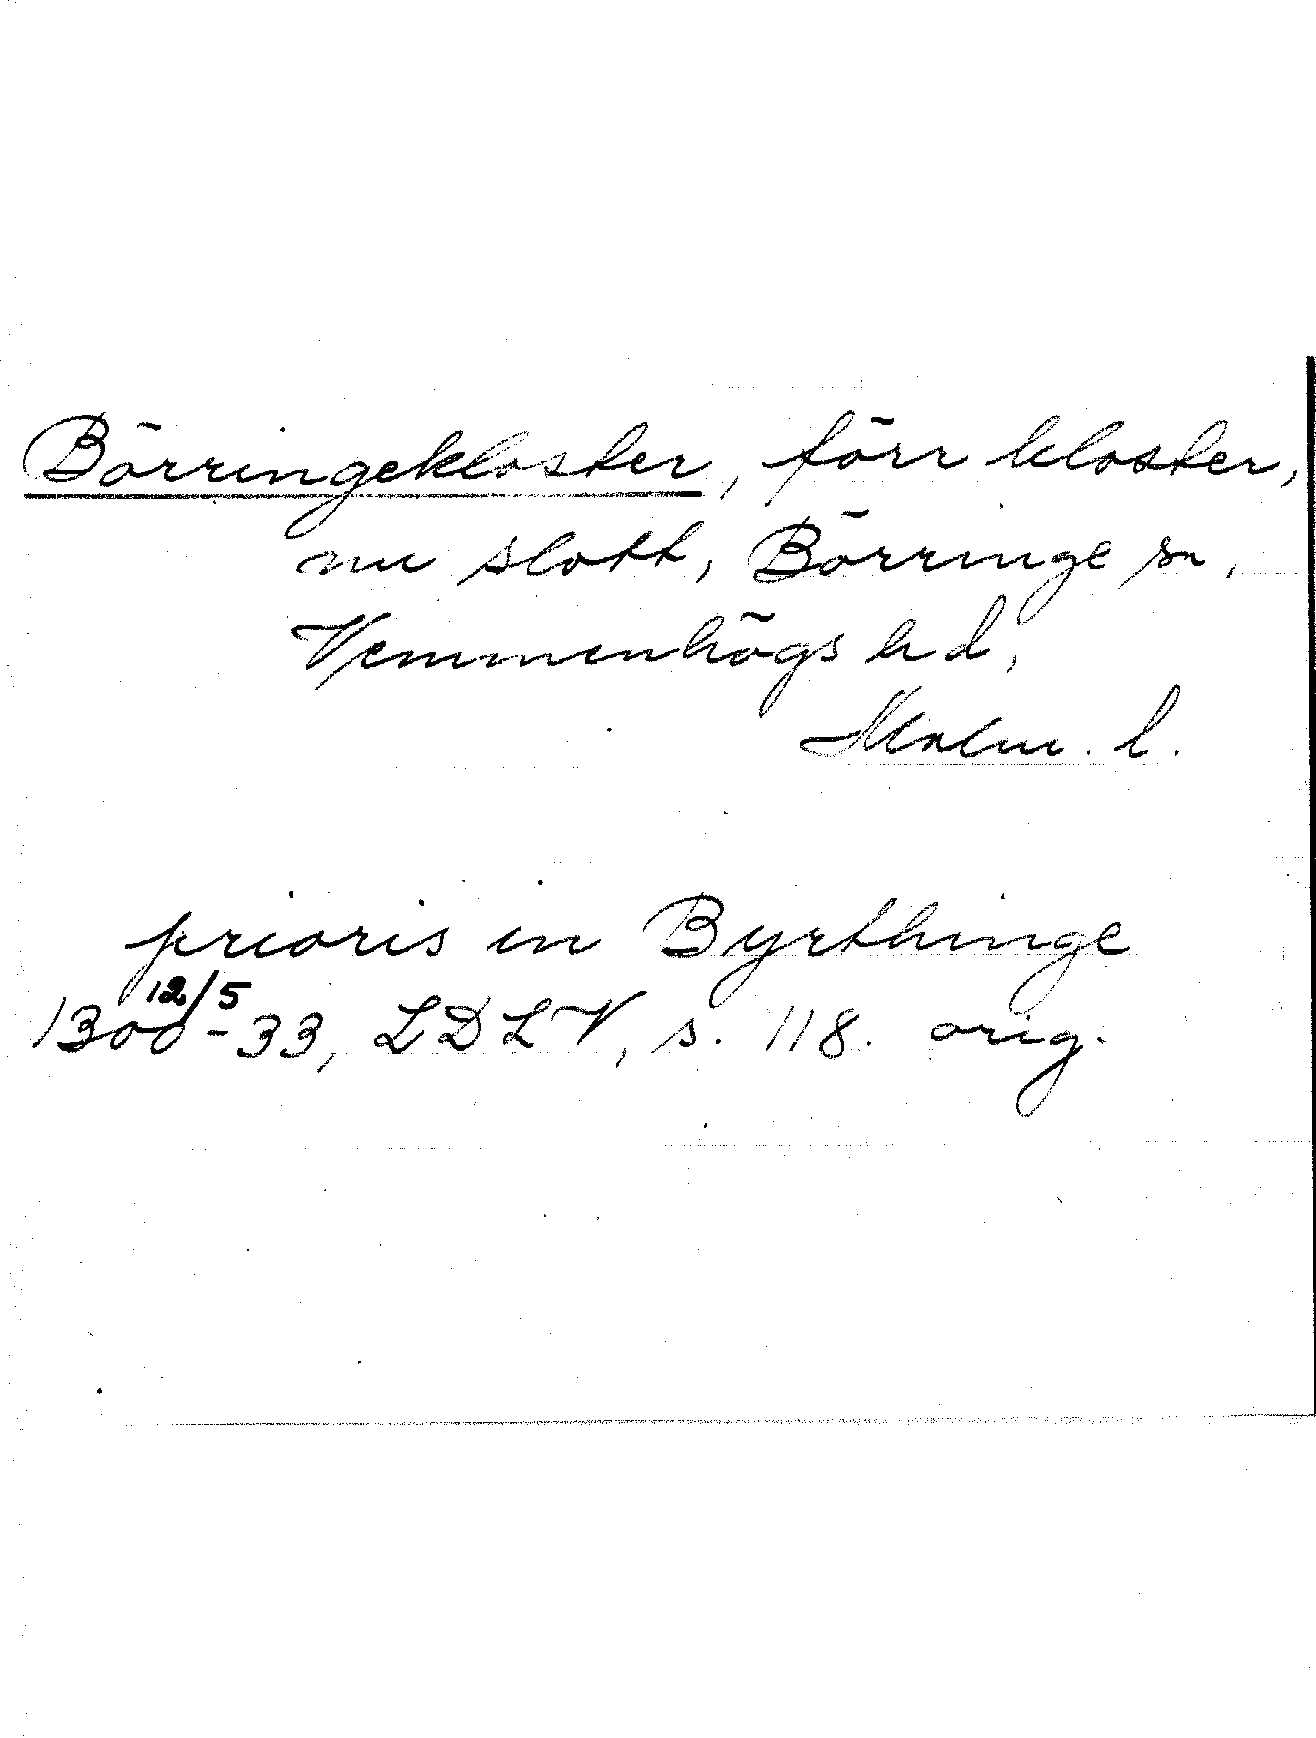 Börringekloster, förr kloster,
nu slott, Börringe sn,
Vemmenhögs hd,
Malm. l.
prioris in Byrthinge
1300 12/5 -33, LDLV, s. 118. orig.